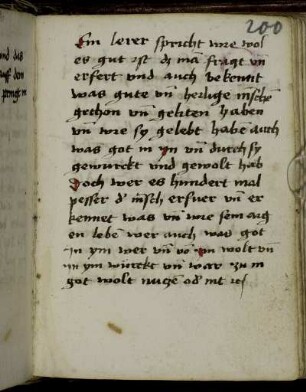 200
nd das
auff den
Ein lerer spricht wie wol
es gut ist dz mā fragt vn̄
erfert vnd auch bekennt
was gute vn̄ heilige mēschē
gethon vn̄ geliten haben
vn̄ wie sy gelebt habē auch
was got in yn vn̄ durch sy
gewurckt vnd gewolt hab
Doch wer es hundert mal
pesser d' mēsch erfuer vn̄ er
kennet was vn̄ wie sein aig
en lebē wer auch was got
in ym wer vn̄ vō ym wolt vn̄
in ym würckt vn̄ war zu in
got wolt nuczē od' nit